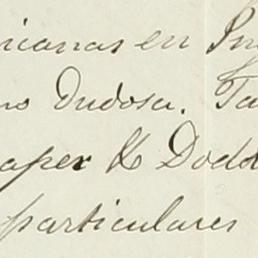 icanas en In
no dudosa. Ta
aper & Dodd
particulares